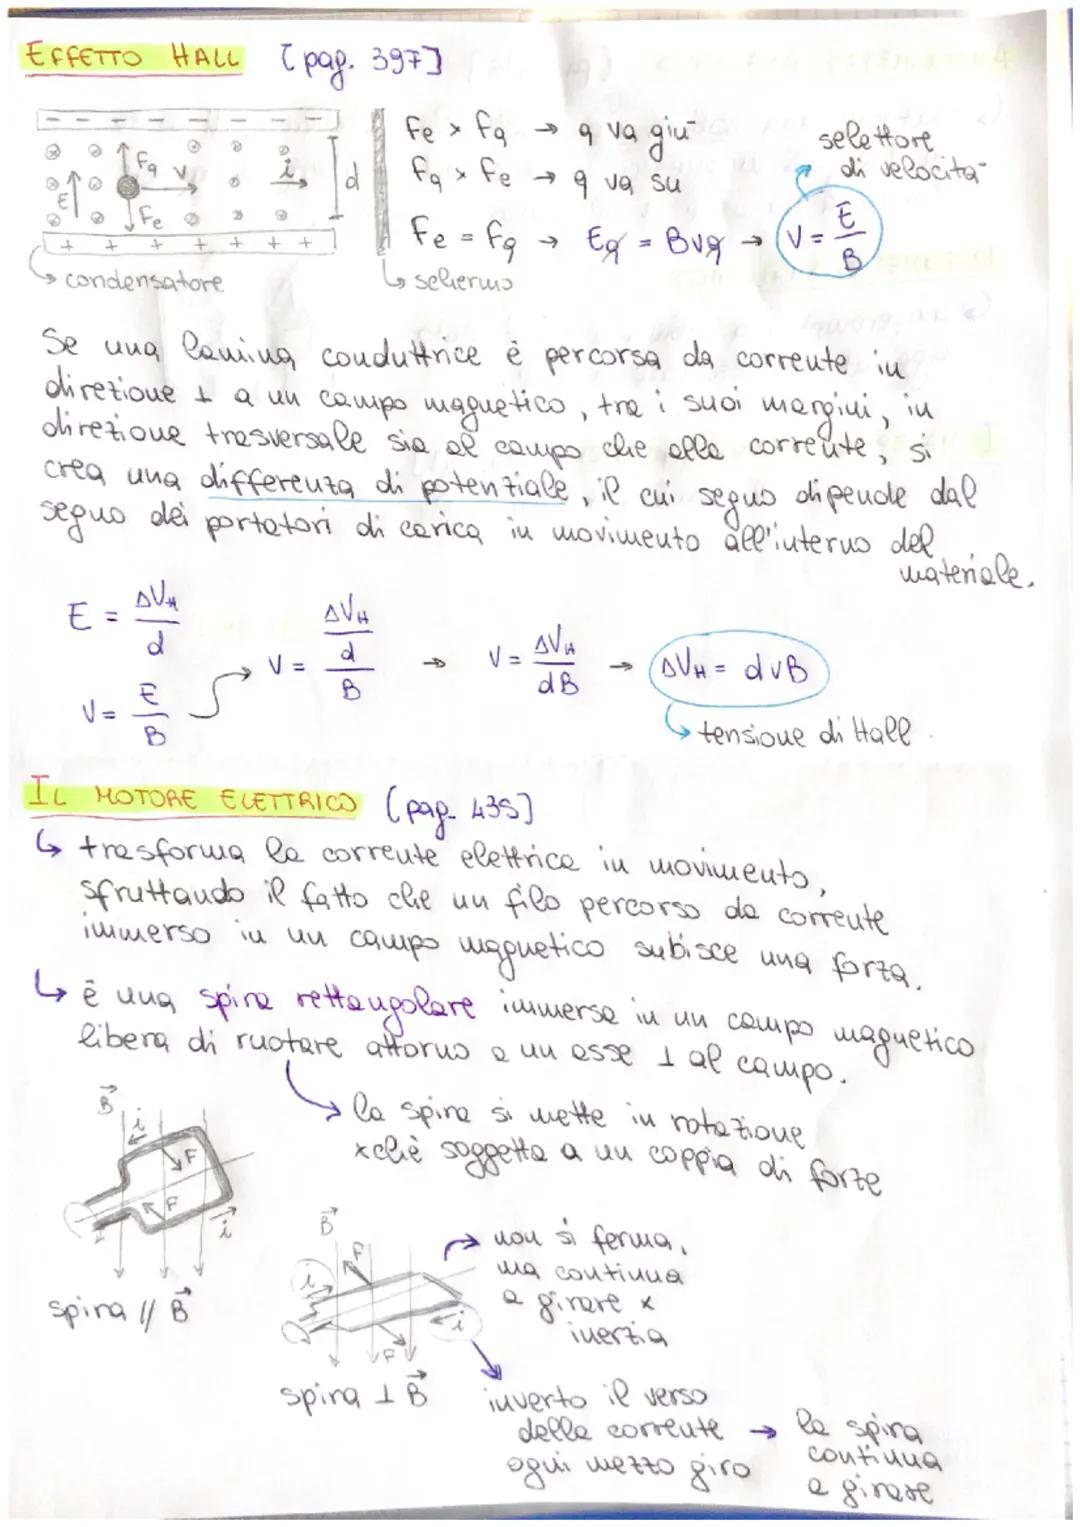 EFFETTO HALL [pag. 397]
- - - - - - - - -
Fq v
E
Fe
i
d
+ + + + + + +
condensatore
schermo
Fe > Fq → q va giù
Fq > Fe → q va su
Fe = Fq → Eq = Bvq → V = E/B
selettore
di velocità
Se una lamina conduttrice è percorsa da corrente in
direzione ⊥ a un campo magnetico, tra i suoi margini, in
direzione trasversale sia al campo che alla corrente, si
crea una differenza di potenziale, il cui segno dipende dal
segno dei portatori di carica in movimento all'interno del
materiale.
E = ΔVH/d
V = E/B
V = (ΔVH/d)/B → V = ΔVH/dB → ΔVH = dvB
tensione di Hall.
IL MOTORE ELETTRICO [pag. 435]
↳ trasforma la corrente elettrica in movimento,
sfruttando il fatto che un filo percorso da corrente
immerso in un campo magnetico subisce una forza.
↳ è una spira rettangolare immersa in un campo magnetico
libera di ruotare attorno a un asse ⊥ al campo.
la spira si mette in rotazione
xchè soggetta a un coppia di forze
B
i
F
F
i
spira // B
B
F
i
i
F
spira ⊥ B
non si ferma,
ma continua
a girare x
inerzia
inverto il verso
della corrente →
ogni mezzo giro
la spira
continua
a girare